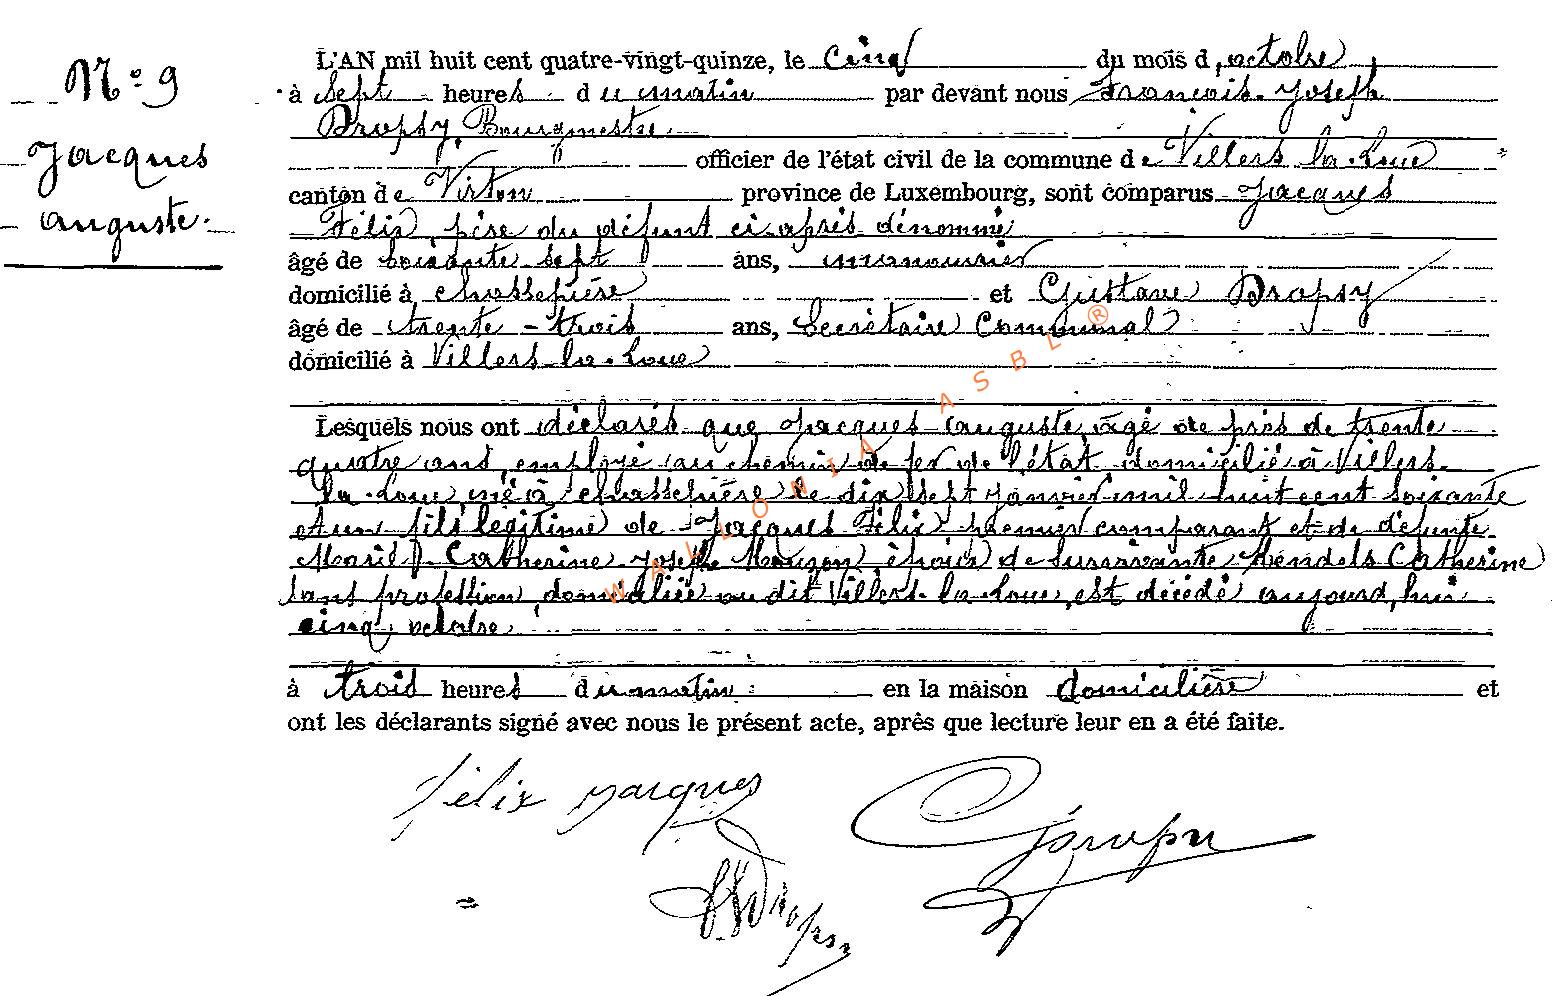 N° 9
Jacques
auguste.
L'AN mil huit cent quatre-vingt-quinze, le cinq du mois d'octobre
à sept heures du matin par devant nous François Joseph
Dropsy, Bourgmestre
officier de l'état civil de la commune de Villers la-Loue
canton de Virton province de Luxembourg, sont comparus Jacques
Félix, père du défunt ci-après dénommé
âgé de soixante sept ans, manouvrier
domicilié à chassepierre et Gustave Dropsy
âgé de trente-trois ans, Secrétaire Communal
domicilié à Villers-la-Loue
Lesquels nous ont déclarés que Jacques auguste, âgé de près de trente
quatre ans, employé au chemin de fer de l'état, domicilié à Villers-
la-Loue, né à chassepierre le dix sept janvier mil huit cent soixante
et un fils légitime de Jacques Félix premier comparant et de défunte
Marie Catherine Joseph Mouzon, époux de survivante Mendels Catherine
sans profession, domiciliée au dit Villers-la-Loue, est décédé aujourd'hui
cinq octobre
à trois heures du matin en la maison domicilière et
ont les déclarants signé avec nous le présent acte, après que lecture leur en a été faite.
félix Jacques
GDropsy
FJDropsy
WALLONIA ASBL ®